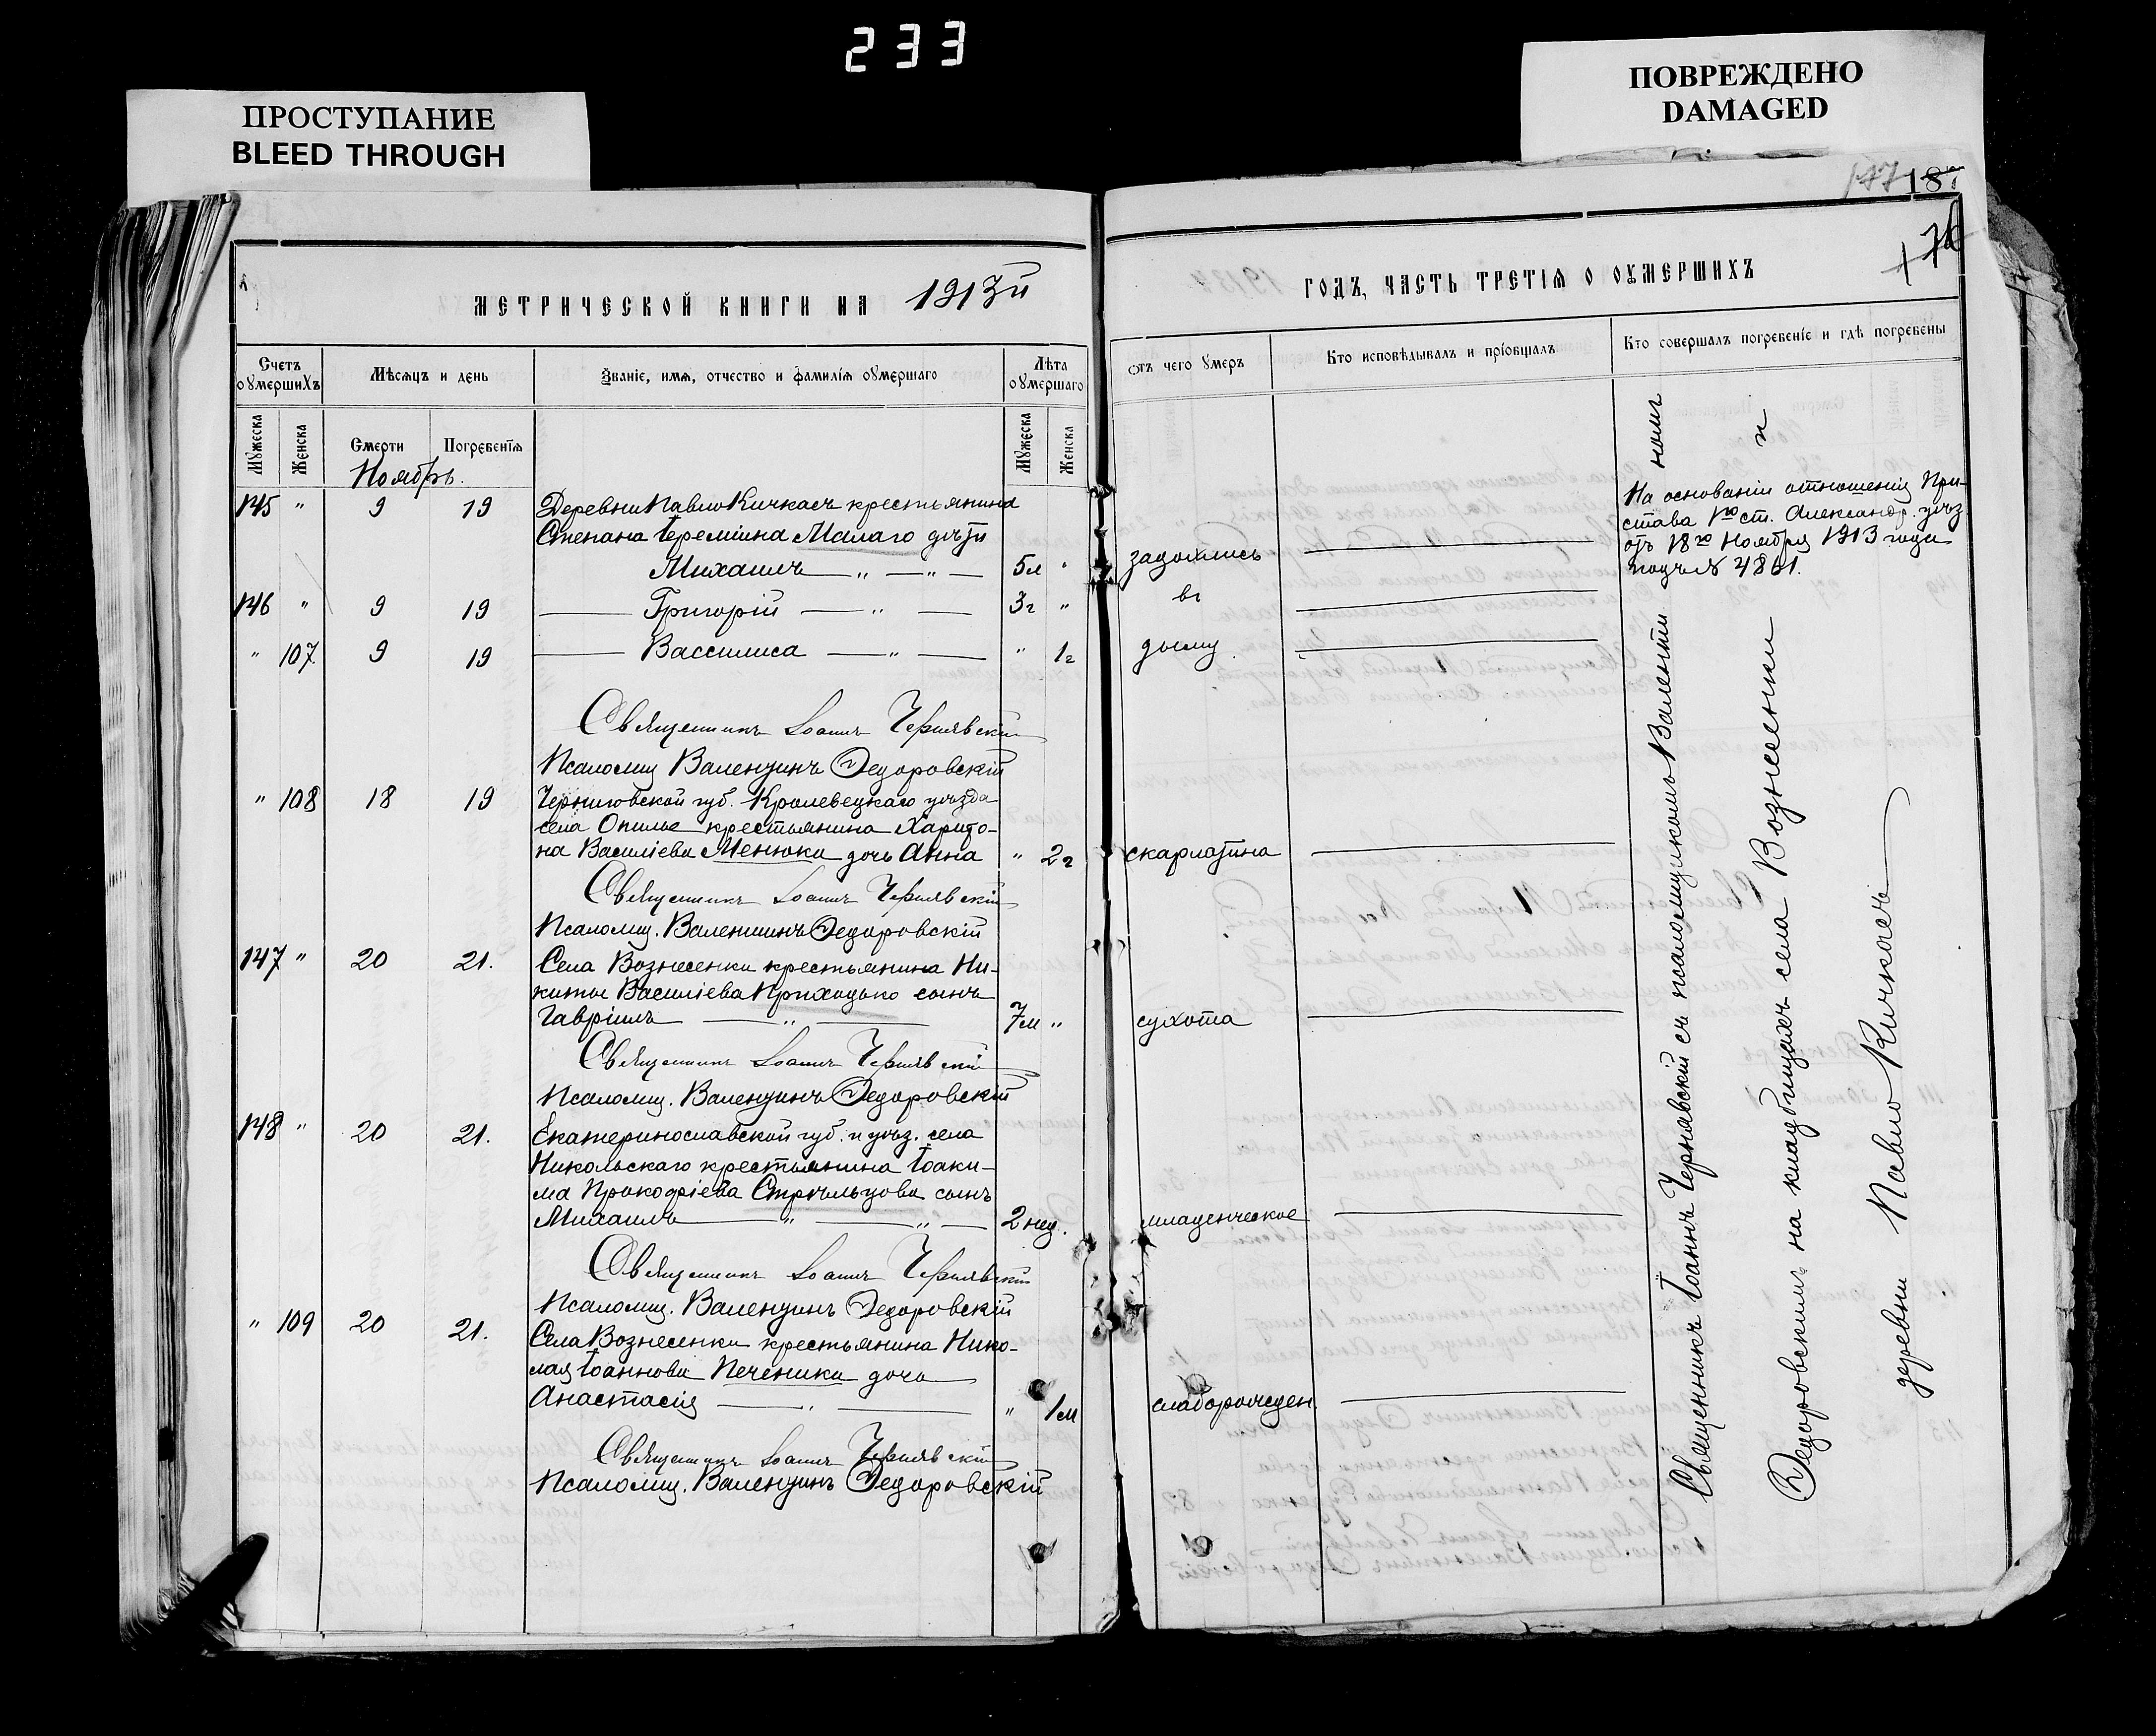 233
ПРОСТУПАНИЕ
BLEED THROUGH
ПОВРЕЖДЕНО
DAMAGED
147 187
176
МЕТРИЧЕСКОЙ КНИГИ НА 1913й
Счетъ оумершихъ
Мѣсяцъ и день
Званіе, имя, отчество и фамилія оумершаго
Лѣта оумершаго
Мужеска
Женска
Смерти
Погребенія
Мужеска
Женска
Ноябрь.
145 " 9 19 Деревни Павло Кичкасъ крестьянина
Степана Іереміина Малаго дѣти
Михаилъ — " — " — 5л "
146 " 9 19 — Григорій — " — 3г "
" 107. 9 19 — Вассилиса — " — " 1г
Священникъ Іоаннъ Чернявскій
Псаломщ Валентинъ Ѳедоровскій
" 108 18 19 Черниговской губ. Кролевецкаго уѣзда
села Опилье крестьянина Харито-
на Василіева Менюка дочь Анна " 2г
Священникъ Іоаннъ Чернявскій
Псаломщ. Валентинъ Ѳедоровскій
147 " 20 21. Села Вознесенки крестьянина Ни-
киты Василіева Приходько сынъ
Гавріилъ — " — 7м "
Священникъ Іоаннъ Чернявскій
Псаломщ. Валентинъ Ѳедоровскій
148 " 20 21. Екатеринославской губ. и уѣз. села
Никольскаго крестьянина Іоаки-
ма Прокофіева Стрѣльцова сынъ
Михаилъ — " — " — 2 нед.
Священникъ Іоаннъ Чернявскій
Псаломщ. Валентинъ Ѳедоровскій
" 109 20 21. Села Вознесенки крестьянина Нико-
лая Іоаннова Печеника дочь
Анастасія — " — " 1м
Священникъ Іоаннъ Чернявскій
Псаломщ. Валентинъ Ѳедоровскій
ГОДЪ, ЧАСТЬ ТРЕТІЯ О ОУМЕРШИХЪ
Отъ чего умеръ
Кто исповѣдывалъ и пріобщалъ
Кто совершалъ погребеніе и гдѣ погребены
задохлись
въ
дыму.
скарлатина
сухота
младенческое
слаборожден.
На основаніи отношенія При-
става 1го ст. Александр. уѣз.
отъ 18го Ноября 1913 года
подъ №
Священникъ Іоаннъ Чернявскій съ псаломщикомъ Валенти номъ
Ѳедоровскимъ на кладбищахъ села Вознесенки и
деревни Павло Кичкасъ